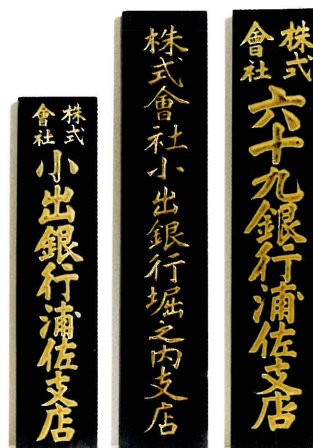 株式
會社
六十九銀行浦佐支店
株式會社小出銀行堀之内支店
株式
會社
小出銀行浦佐支店